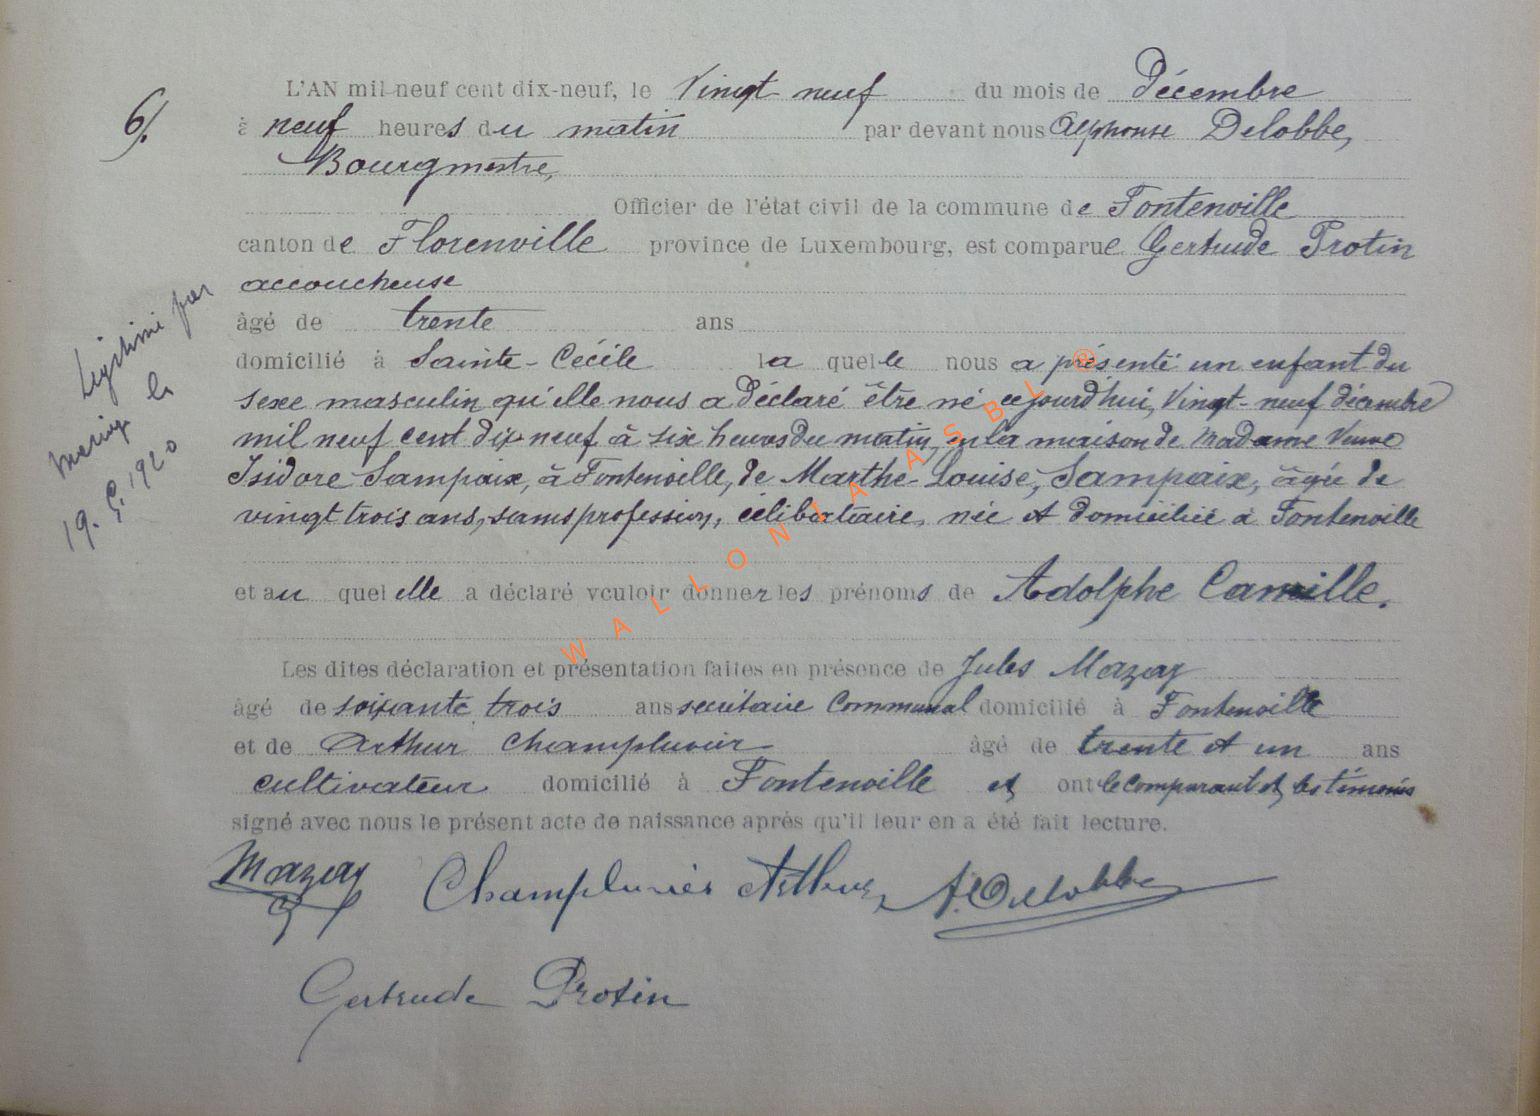 6/.
L'AN mil neuf cent dix-neuf, le Vingt neuf du mois de Décembre
à neuf heures du matin par devant nous Alphonse Delobbe,
Bourgmestre,
Officier de l'état civil de la commune de Fontenoille
canton de Florenville province de Luxembourg, est comparue Gertrude Protin
accoucheuse
âgé de trente ans
domicilié à Sainte-Cécile laquelle nous a présenté un enfant du
sexe masculin qu'elle nous a déclaré être né cejourd'hui, Vingt-neuf décembre
mil neuf cent dix neuf à six heures du matin, en la maison de Madame Veuve
Isidore Sampaix, à Fontenoille, de Marthe-Louise, Sampaix, âgée de
vingt trois ans, sans profession, célibataire, née et domiciliée à Fontenoille
et au quel elle a déclaré vouloir donner les prénoms de Adolphe Camille.
Les dites déclaration et présentation faites en présence de Jules Mazay
âgé de soixante trois ans secrétaire communal domicilié à Fontenoille
et de Arthur Champluvier âgé de trente et un ans
cultivateur domicilié à Fontenoille et ont le comparant et les témoins
signé avec nous le présent acte de naissance après qu'il leur en a été fait lecture.
Mazay Champluvier Arthur A. Delobbe
Gertrude Protin
Légitimé par
mariage le
19. 1920
WALLONIA ASBL ®